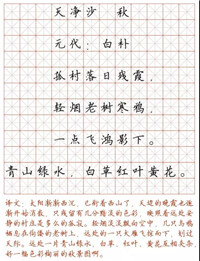 天净沙 秋
元代：白朴
孤村落日残霞，
轻烟老树寒鸦，
一点飞鸿影下。
青山绿水，白草红叶黄花。
译文：太阳渐渐西沉，已衔着西山了，天边的晚霞也逐
渐开始消散，只残留有几分黯淡的色彩，映照着远处安
静的村庄是多么的孤寂，
炊烟淡淡飘向空中，几只乌鸦
栖息在佝偻的老树上，远处的一只大雁飞掠而下，划过
天际。远处一片青山绿水，白草、红叶、黄花